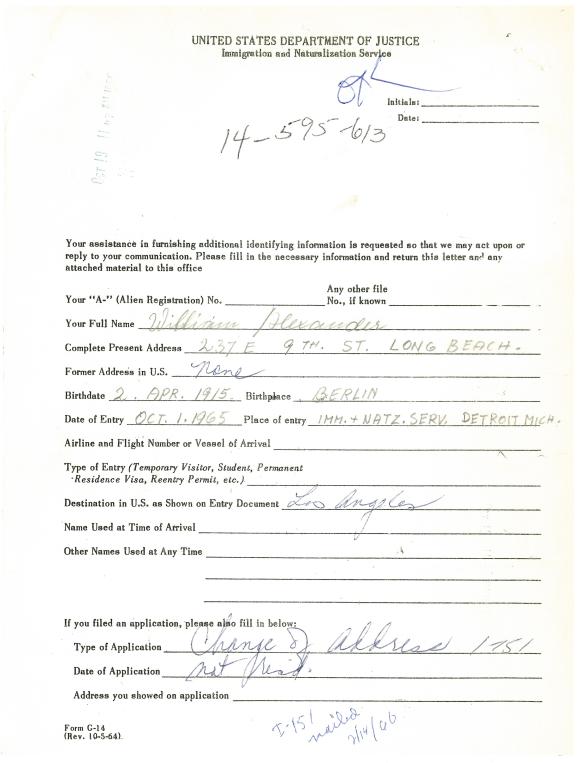 UNITED STATES DEPARTMENT OF JUSTICE
Immigration and Naturalization Service
Initials:
Date:
14-595-613
Your assistance in furnishing additional identifying information is requested so that we may act upon or
reply to your communication. Please fill in the necessary information and return this letter and any
attached material to this office
Any other file
Your "A-" (Alien Registration) No. No., if known
Your Full Name William Alexander
Complete Present Address 237 E 9TH. ST. LONG BEACH.
Former Address in U.S. None
Birthdate 2. APR. 1915. Birthplace BERLIN
Date of Entry OCT. 1. 1965 Place of entry IMM. + NATZ. SERV. DETROIT MICH.
Airline and Flight Number or Vessel of Arrival
Type of Entry (Temporary Visitor, Student, Permanent
Residence Visa, Reentry Permit, etc.)
Destination in U.S. as Shown on Entry Document Los Angeles
Name Used at Time of Arrival
Other Names Used at Any Time
If you filed an application, please also fill in below:
Type of Application Change of Address 1751
Date of Application not
Address you showed on application
I-151
mailed
2/14/66
Form G-14
(Rev. 10-5-64)